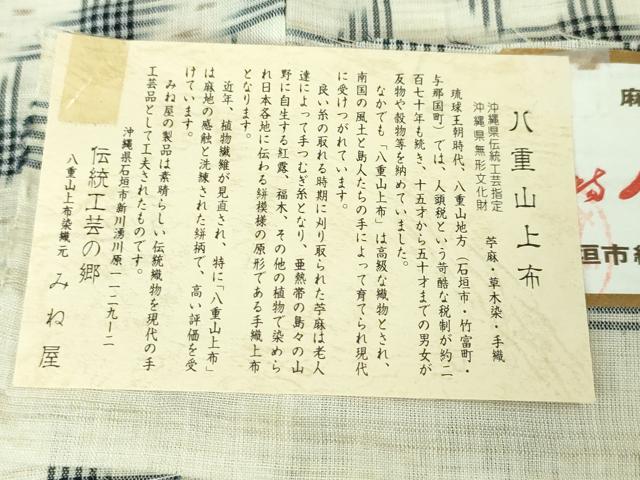 八重山上布
苧麻・草木染・手織
沖縄県伝統工芸指定
沖縄県無形文化財
琉球王朝時代、八重山地方（石垣市・竹富町・
与那国町）では、人頭税という苛酷な税制が約二
百七十年も続き、十五才から五十才までの男女が
反物や穀物等を納めていました。
なかでも「八重山上布」は高級な織物とされ、
南国の風土と島人たちの手によって育てられ現代
に受けつがれています。
良い糸の取れる時期に刈り取られた苧麻は老人
達によって手つむぎ糸となり、亜熱帯の島々の山
野に自生する紅露、福木、その他の植物で染めら
れ日本各地に伝わる絣模様の原形である手織上布
となります。
近年、植物繊維が見直され、特に「八重山上布」
は麻地の感触と洗練された絣柄で、高い評価を受
けています。
みね屋の製品は素晴らしい伝統織物を現代の手
工芸品として工夫されたものです。
沖縄県石垣市新川湧川原一一二九ー二
伝統工芸の郷
八重山上布染織元 みね屋
麻
垣市